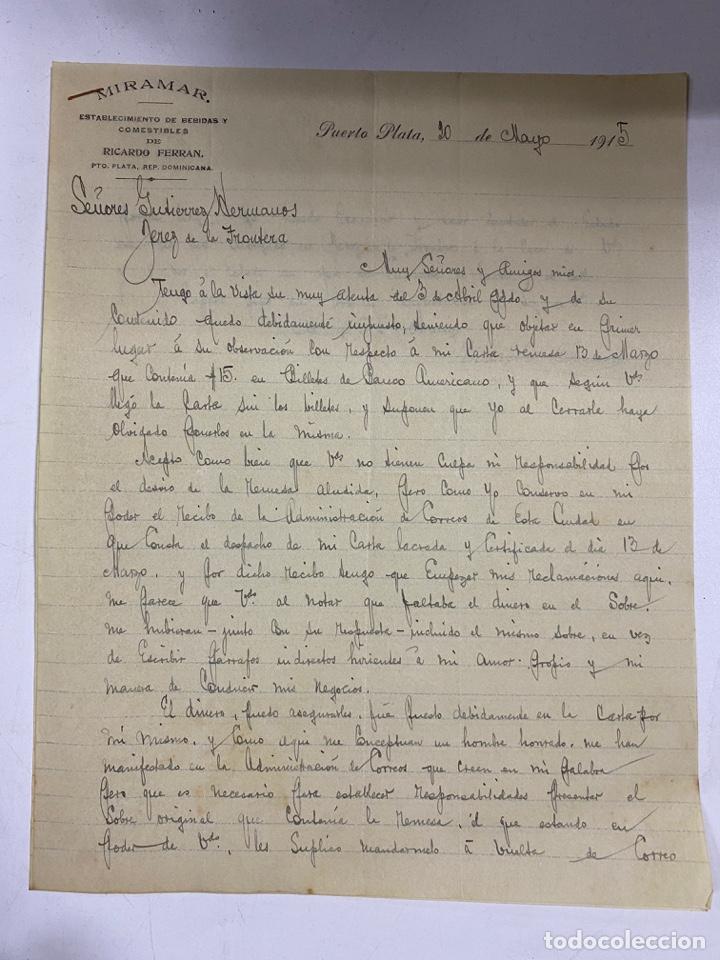 MIRAMAR.
ESTABLECIMIENTO DE BEBIDAS Y
COMESTIBLES
DE
RICARDO FERRAN.
PTO. PLATA, REP. DOMINICANA.
Puerto Plata, 20 de Mayo 1915
Señores Gutierrez Hermanos
Jerez de la Frontera
Muy Señores y Amigos mios.
Tengo á la vista su muy atenta del 3 de Abril ppdo y de su
Contenido quedo debidamente impuesto, teniendo que objetar en primer
lugar á su observación Con respecto á mi Carta remesa 13 de Marzo
que Contenía $15. en Billetes de Banco Americano, y que según Vds
llegó la Carta sin los billetes, y suponen que yo al Cerrarla haya
olvidado ponerlos en la misma.
Acepto Como bien que Vds no tienen Culpa ni responsabilidad por
el desvio de la remesa aludida, pero Como yo Conservo en mi
poder el Recibo de la Administración de Correos de Esta Ciudad en
que Consta el despacho de mi Carta lacrada y Certificada el dia 13 de
Marzo, y por dicho recibo tengo que Empezar mis reclamaciónes aqui.
me parece que Vds. al notar que faltaba el dinero en el Sobre.
me hubieran - junto Con su respuesta - incluido el mismo sobre, en vez
de Escribir párrafos indirectos hirientes á mi Amor Propio y mi
manera de Conducir mis negocios.
El dinero, puedo asegurarles, fué puesto debidamente en la Carta por
mi mismo, y Como aqui me Conceptuan un hombre honrado. me han
manifestado en la Administración de Correos que creen en mi palabra
pero que es necesario para establecer responsabilidades presentar el
Sobre original que Contenía la remesa, el que estando en
poder de Vds, les Suplico mandarmelo á vuelta de Correo
todocoleccion